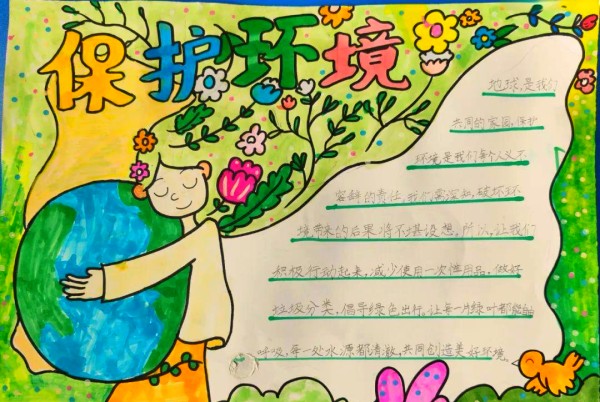 保护环境
地球,是我们
共同的家园,保护
环境是我们每个人义不
容辞的责任,我们要深知,破坏环
境带来的后果将不堪设想,所以,让我们
积极行动起来,减少使用一次性用品,做好
垃圾分类,倡导绿色出行,让每一片绿叶都能自由
呼吸,每一处水源都清澈,共同创造美好环境。